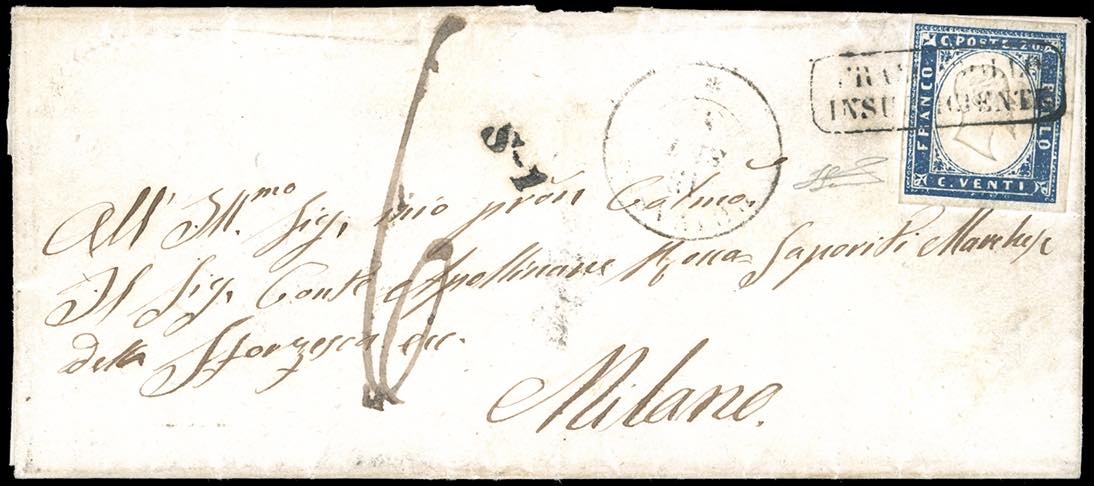 C. POSTE 20.
FRANCO
C. VENTI
INSUFFICIENTE
S-1
6
All' Ill.mo Sig. mio prōn Colmo.
Il Sig. Conte Apollinare Rocca Saporiti Marchese
della Sforzesca ecc.
Milano.